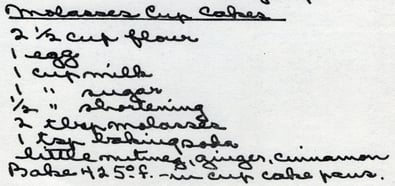 Molasses Cup Cakes
2 1/2 cup flour
1 egg
1 cup milk
1 " sugar
1/2 " shortening
2 tbsp molasses
1 tsp baking soda
little nutmeg, ginger, cinnamon
Bake 425° f. - in cup cake pans.